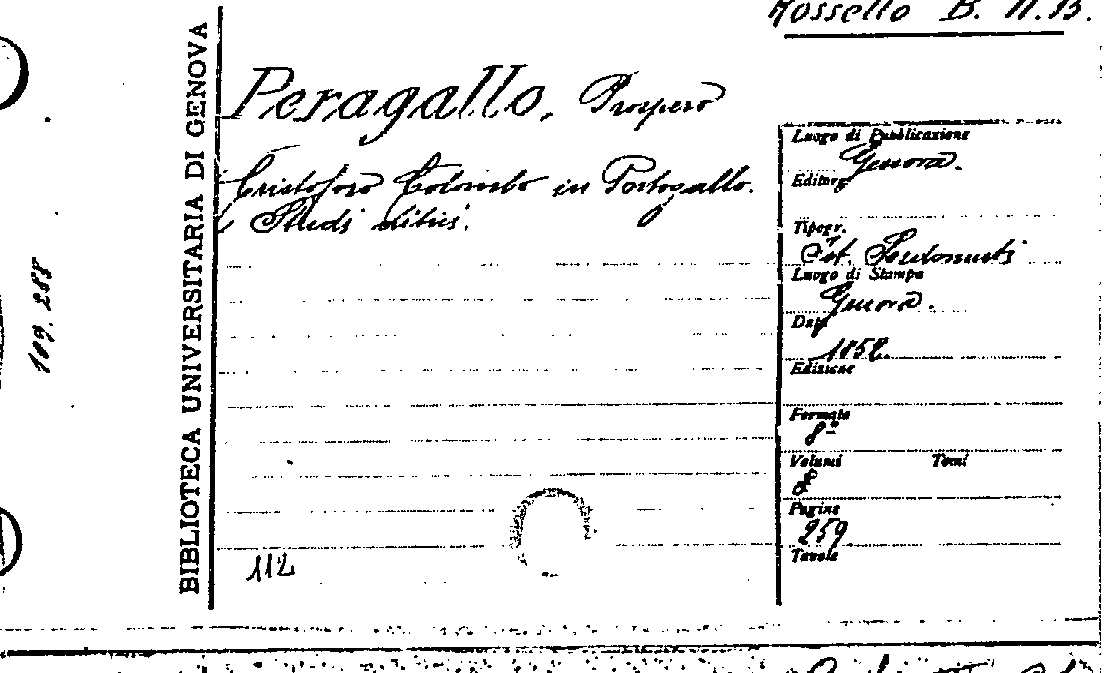 Rossello B. n.13.
BIBLIOTECA UNIVERSITARIA DI GENOVA
109.288
Peragallo, Prospero
Cristoforo Colombo in Portogallo.
Studi critici.
112
Luogo di Pubblicazione
Genova.
Editore
Tipogr.
Luogo di Stampa
Genova.
Data
Edizione
Formato
8º
Volumi Tomi
Pagine
259
Tavole